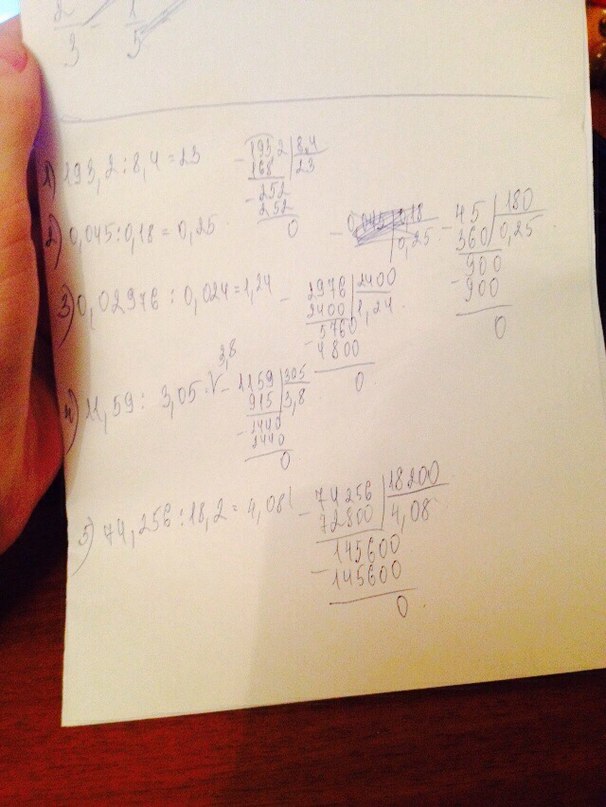 2 1
3 - 5
1) 193,2 : 8,4 = 23
- 193,2 | 8,4
168 | 23
- 252
252
0
2) 0,045 : 0,18 = 0,25
0,25
- 45 | 180
360 | 0,25
- 900
900
0
3) 0,02976 : 0,024 = 1,24
- 2976 | 2400
2400 | 1,24
5760
- 4800
0
4) 11,59 : 3,05 = 3,8
- 1159 | 305
915 | 3,8
- 2440
2440
0
5) 74,256 : 18,2 = 4,08
- 74256 | 18200
72800 | 4,08
- 145600
145600
0